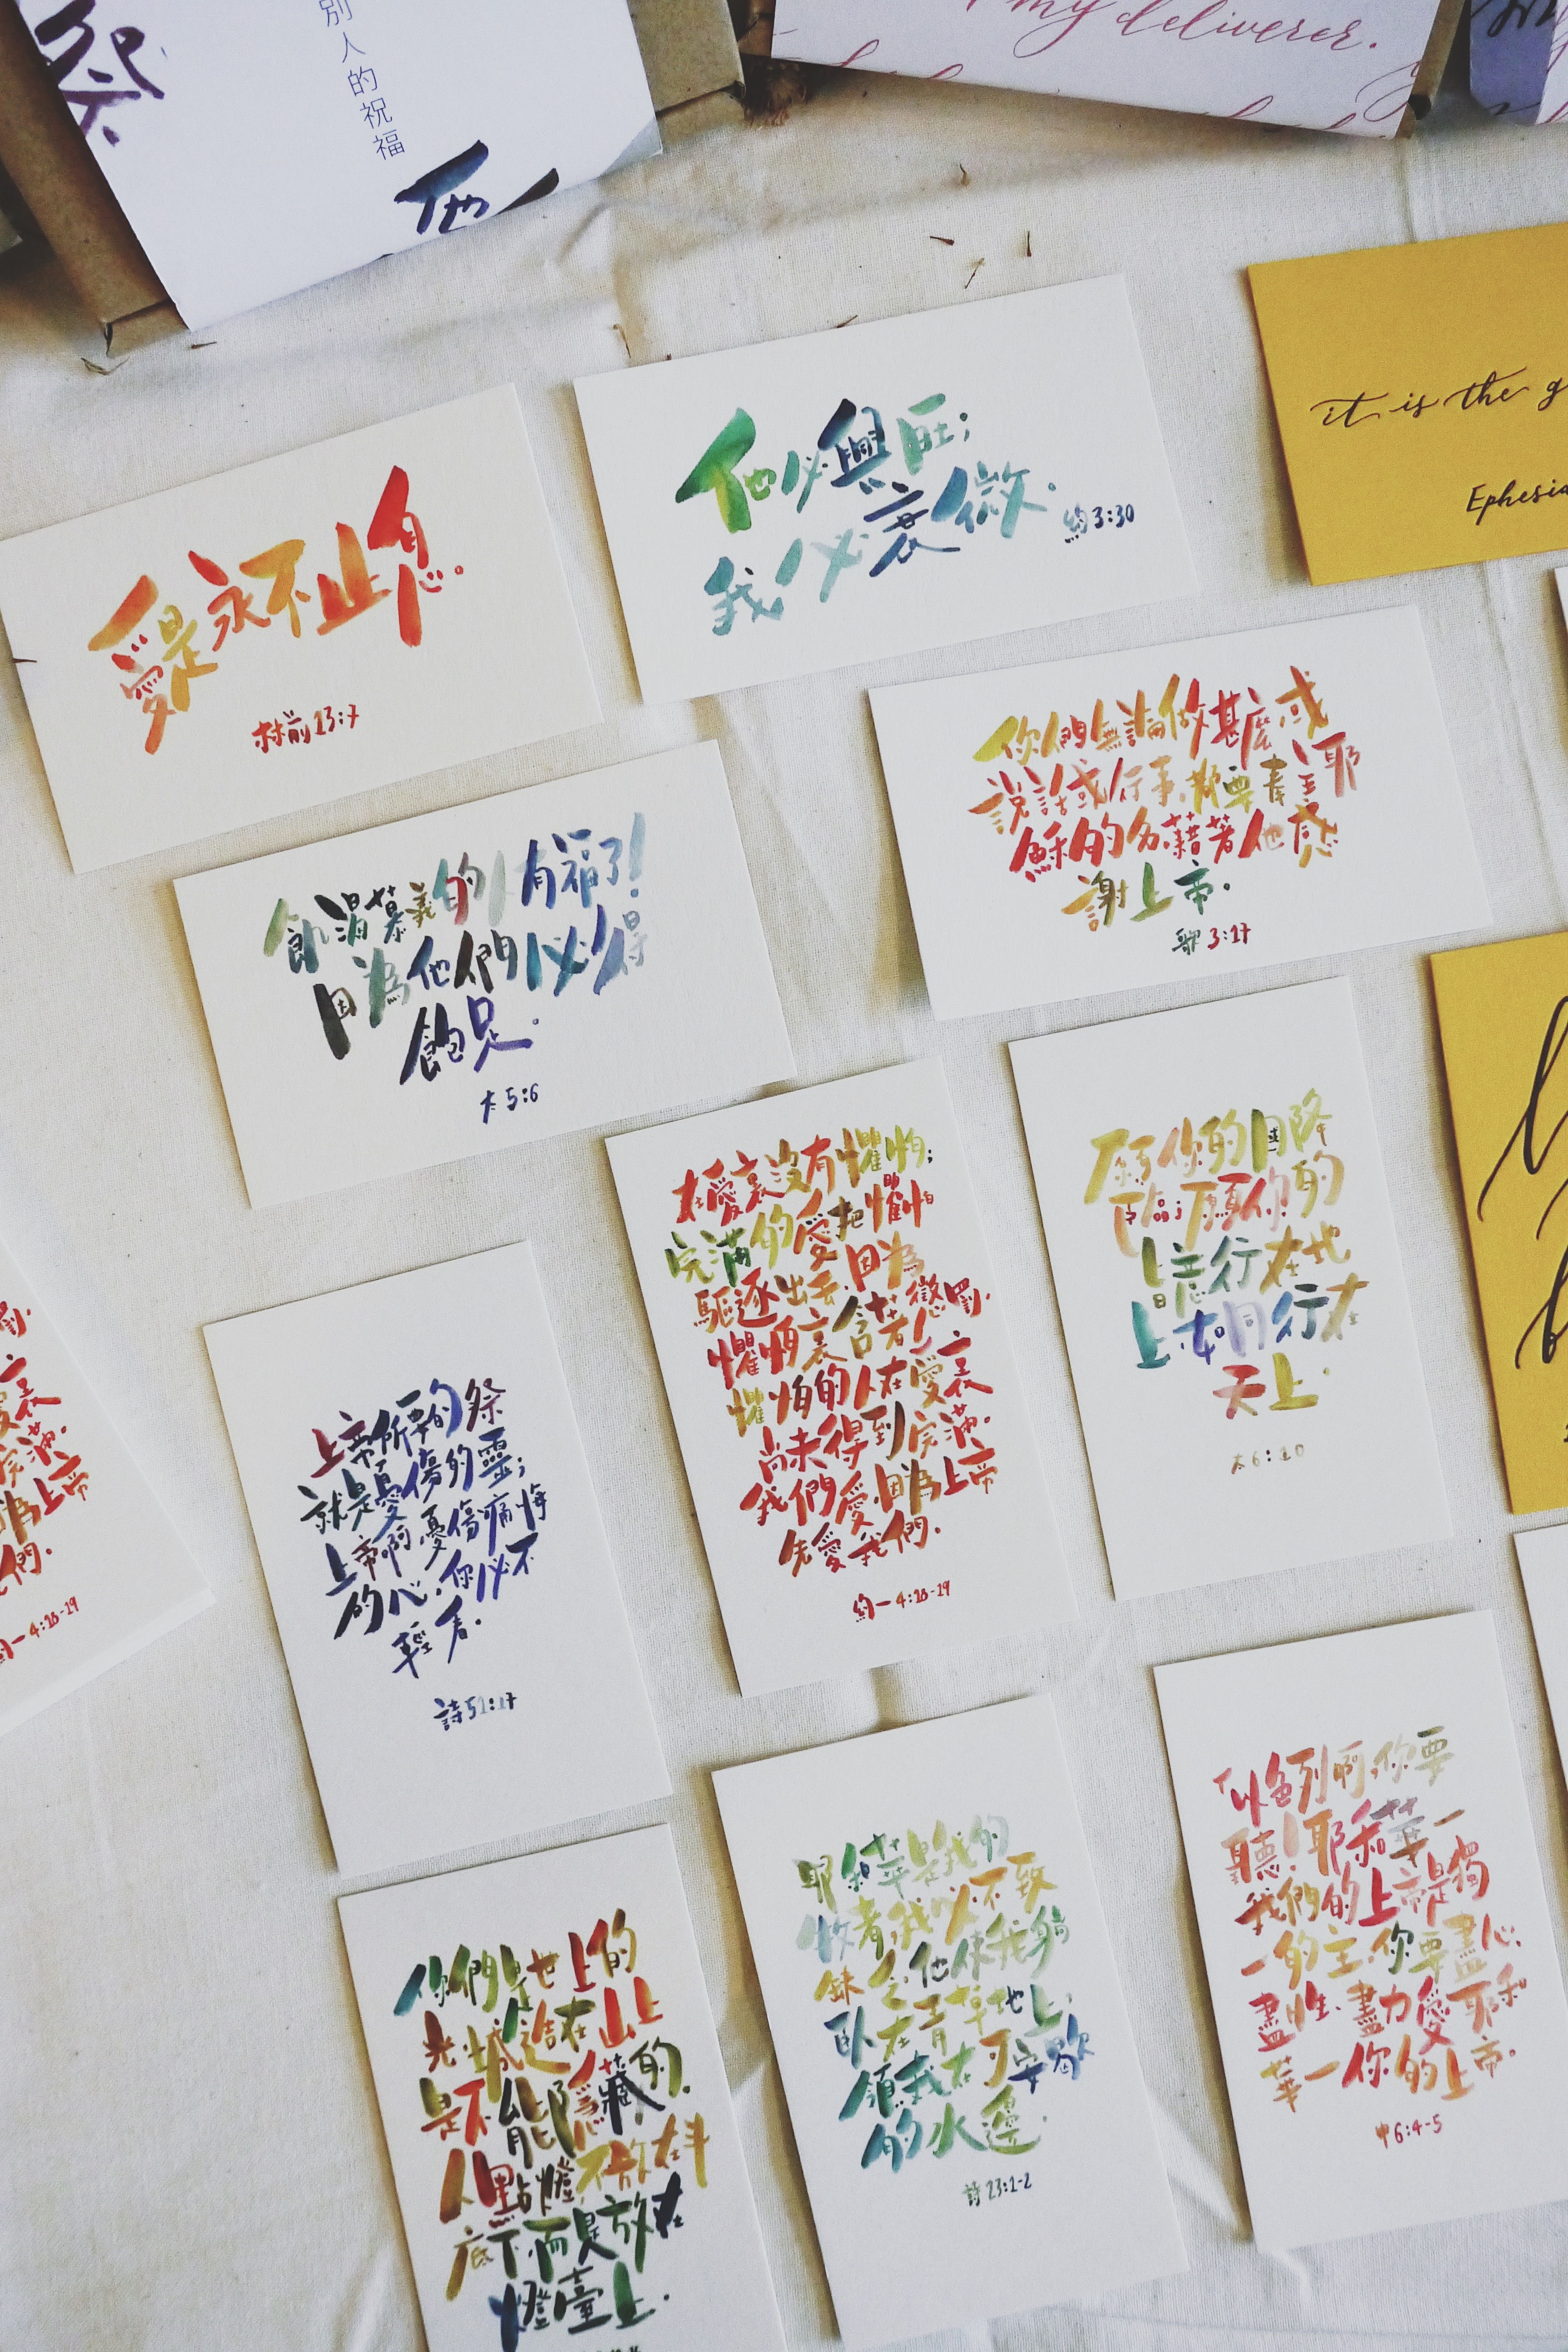 祭
別人的祝福
my deliverer.
愛是永不止息。
林前13:7
他必興旺;
我必衰微。
約3:30
it is the g
Ephesia
你們無論做甚麼或
說話或行事,都要奉主耶
穌的名藉著他感
謝上帝。
歌3:17
飢渴慕義的人有福了!
因為他們必得
飽足。
太5:6
在愛裏沒有懼怕;
完滿的愛把懼怕
驅逐出去,因為
懼怕裏含著懲罰,
懼怕的人在愛裏
尚未得到完滿。
我們愛,因為上帝
先愛我們。
約一4:18-19
願你的國降
臨;願你的
旨意行在地
上,如同行在
天上。
太6:10
上帝所要的祭
就是憂傷的靈;
上帝啊,憂傷痛悔
的心,你必不
輕看。
詩51:17
裏
完滿。
為上帝
們。
約一4:18-19
「以色列啊,你要
聽!耶和華—
我們的上帝是獨
一的主。你要盡心、
盡性、盡力愛耶和
華—你的上帝。
申6:4-5
耶和華是我的
牧者,我必不致
缺乏。他使我躺
臥在青草地上,
領我在可安歇
的水邊。
詩23:1-2
你們是世上的
光。城造在山上
是不能隱藏的。
人點燈,不放在斗
底下,而是放在
燈臺上。